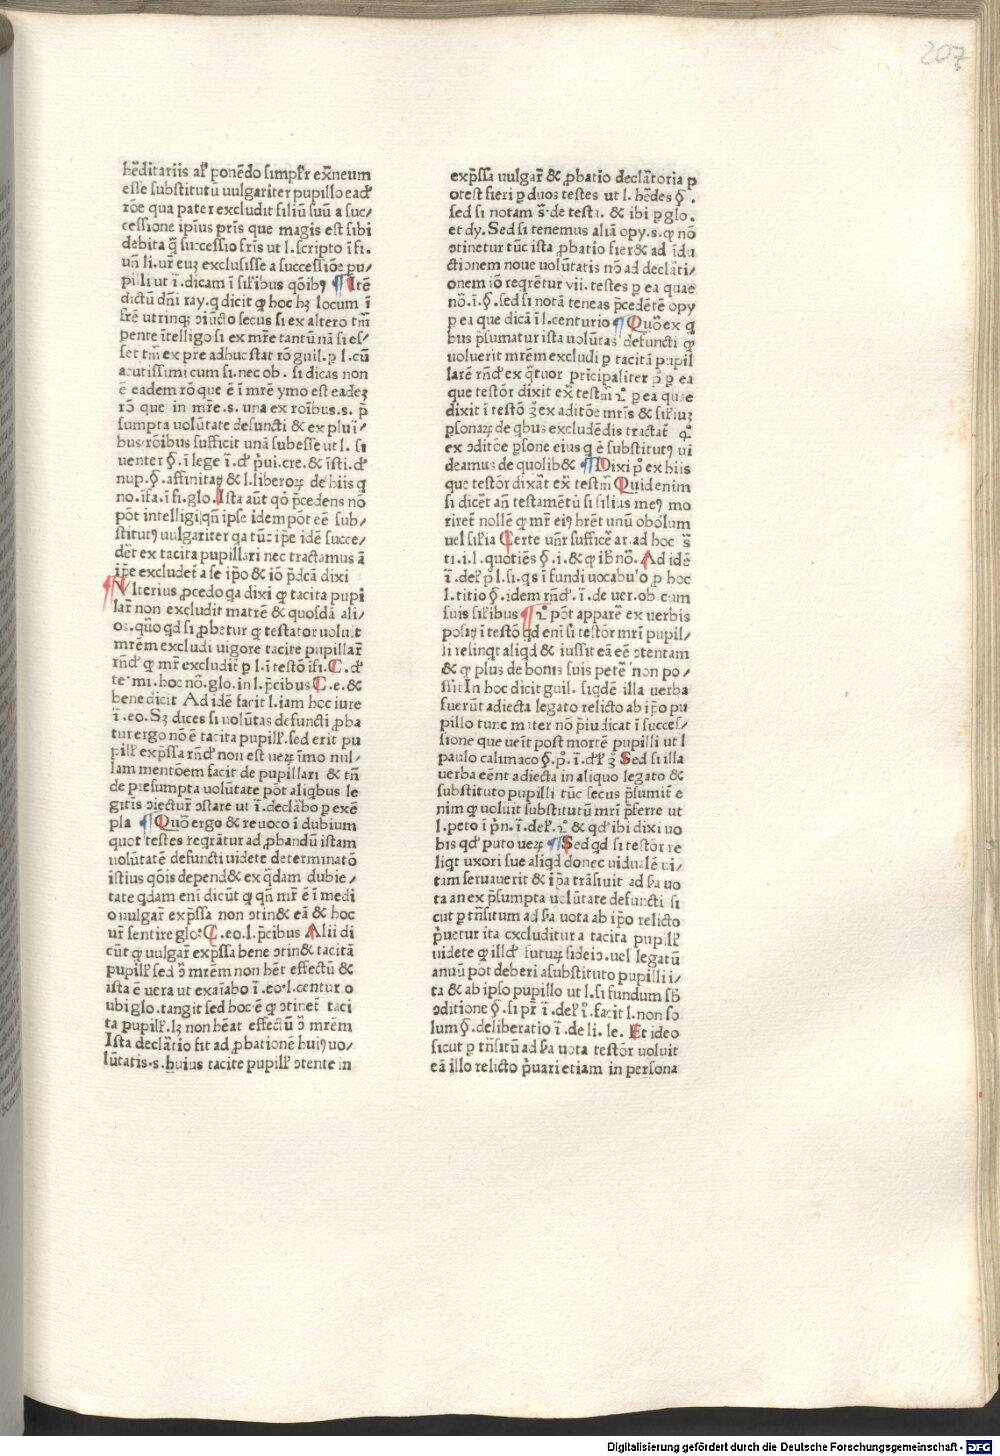 207
hẽditariis al' ponẽdo simpl'r ex̃neum
esse substitutũ uulgariter pupillo eadẽ
rõe qua pater excludit filiũ suũ a suc/
cessione ipius pr̃is que magis est sibi
debita q̃ successio fr̃is ut l. scripto ĩ fi.
uñ li. ur̃ euꝫ exclusisse a successiõe pu/
pilli ut ĩ. dicam ĩ similibus qõibꝰ ¶ Itẽ
dictũ dñi ray. q dicit ꝙ hoc hꝫ locum ĩ
fr̃e utrinqꝫ ↄiũcto secus si ex altero tm̃
pente ĩtelligo si ex mr̃e tantũ nã si es/
set tm̃ ex pr̃e adhuc stat rõ guil. p l. cũ
acutissimi cum si. nec ob. si dicas non
ẽ eadem rõ que ẽ ĩ mr̃e ymo est eadeꝫ
rõ que in mr̃e .s. una ex roĩbus .s. p̃
sumpta uolũtate defuncti & ex pluĩ/
bus rõibus sufficit unã subesse ut l. si
uenter §. ĩ lege ĩ. đ p̃ui. cre. & ĩsti. đ
nup. §. affinitaꝫ & l. liberoꝝ de hiis q
no. ĩfa. ĩ fi. glo. Ista aũt qõ p̃cedens nõ
põt intelligi qñ ipse idem põt eẽ sub/
stitutꝰ uulgariter qa tũc ip̃e idẽ succe/
dẽt ex tacita pupillari nec tractamus ã
ip̃e excludet a se ip̃o & iõ p̃dcã dixi
¶ Vlterius ꝓcedo qa dixi ꝙ tacita pupi
lar̃ non excludit matrẽ & quosdã ali/
os. quõ qd si ꝓbetur ꝙ testator uoluit
mr̃em excludi uigore tacite pupillar̃
rñd̃ ꝙ mr̃ excludit̃ p l. ĩ testõ ĩfi. C. đ
te. mi. hoc nõ. glo. in l. p̃cibus C. e. &
bene dicit Ad idẽ facit l. iam hoc iure
ĩ. eo. Sꝫ dices si uolũtas defuncti ꝓba
tur ergo nõ ẽ tacita pupill̃. sed erit pu
pill̃ exp̃ssa rñd̃ non est ueꝝ ĩmo nul/
lam mentõem facit de pupillari & tñ
de presumpta uoluntate põt aliqbus le
gitis ↄiectur̃ ↄstare ut ĩ. declãbo p exẽ
pla ¶ Quõ ergo & reuoco ĩ dubium
quot testes reqrãtur ad ꝓbandũ istam
uolũtatẽ defuncti uidete determinatõ
istius qõis depend& ex q̃dam dubie/
tate qdam eni dicũt ꝙ qñ mr̃ ẽ ĩ medi
o uulgar̃ exp̃ssa non ↄtin& eã & hoc
ur̃ sentire glo. C. eo. l. p̃cibus Alii di
cũt ꝙ uulgar̃ exp̃ssa bene ↄtin& tacitã
pupill̃ sed ↄ̃ mr̃em non hẽt effectũ &
ista ẽ uera ut exaĩabo ĩ. eo. l. centur. o
ubi glo. tangit sed hoc ẽ ꝙ ↄtinet taci
ta pupill̃ lꝫ non hẽat effectũ ↄ̃ mr̃em
Ista declãtio fit ad ꝓbationẽ huiꝰ uo/
lũtatis .s. huius tacite pupill̃ ↄtente in
exp̃ssa uulgar̃ & ꝓbatio declãtoria p
otest fieri p duos testes ut l. hẽdes §.
sed si notam s̃. de testa. & ibi p glo.
et dy. Sed si tenemus aliã opy. s. ꝙ nõ
ↄtinetur tũc ista ꝓbatio fier& ad ĩdu
ctionem noue uolũtatis nõ ad declãti/
onem iõ reqrẽtur vii. testes p ea quae
nõ. ĩ. §. sed si notã teneas p̃cedẽtẽ opy
p ea que dicã ĩ l. centurio ¶ Quõ ex q
bus p̃sumatur ista uolũtas defuncti ꝙ
uoluerit mr̃em excludi p tacitã pupil
larẽ rñd̃ ex q̃tuor prĩcipaliter p̃ p ea
que testõr dixit ex̃ testm̃ 2º p ea quae
dixit ĩ testõ 3̃ ex aditõe mr̃is & similiuꝫ
psonaꝝ de qbus excludẽdis tractat̃ q̃º
ex ↄditõe psone eius q ẽ substitutꝰ ui
deamus de quolib& ¶ Dixi pº ex hiis
que testõr dixãt ex̃ testm̃ Quid enim
si dicẽt añ testamẽtũ si filius meꝰ mo
riret̃ nollẽ ꝙ mr̃ eiꝰ hr̃et unũ obolum
uel similia Certe uñr sufficẽ ar. ad hoc s̃
ti. i. l. quotiẽs §. i. & ꝙ ib̃ nõ. Ad idẽ
ĩ. deł. p l. si. qs ĩ fundi uocabulo p hoc
l. titio §. idem rñd̃. ĩ. de uer. ob. cum
suis similibus ¶ 2º põt apparẽ ex uerbis
positꝭ ĩ testõ qd enĩ si testõr mr̃i pupil/
li relinqt aliqd & iussit eã eẽ ↄtentam
& ꝙ plus de bonis suis petẽ non po/
ssit In hoc dicit guil. siqdẽ illa uerba
fuerũt adiecta legato relicto ab ip̃o pu
pillo tunc mater nõ p̃iudicat ĩ succes/
sione que ueĩt post mortẽ pupilli ut l
paulo calimaco §. p̃. ĩ. deł. 3̃ Sed si illa
uerba eẽnt adiecta in aliquo legato &
substituto pupilli tũc secus p̃sumit̃ e
nim ꝙ uoluit substitutũ mr̃i p̃ferre ut
l. peto ĩ p̃n. ĩ. deł. 2º & qd̃ ibi dixi uo
bis qd̃ puto ueꝝ ¶ Sed qd si testõr re
liqt uxori sue aliqd donec uidualẽ ui/
tam seruauerit & ip̃a trãsiuit ad scã uo
ta an ex p̃sumpta uolũtate defuncti si
cut p trñsitum ad scã uota ab ip̃o relicto
p̃uetur ita excluditur a tacita pupill̃
uidete ꝙ illđ futuꝝ fideiↄ. uel legatũ
anuũ põt deberi a substituto pupilli i/
ta & ab ipso pupillo ut l. si fundum sb̃
ↄditione §. si pr̃ ĩ. deł. ĩ. facit l. non so
lum §. deliberatio ĩ. de li. le. Et ideo
sicut p trñsitũ ad scã uota testõr uoluit
eã illo relicto p̃uari etiam in persona
Digitalisierung gefördert durch die Deutsche Forschungsgemeinschaft - DFG